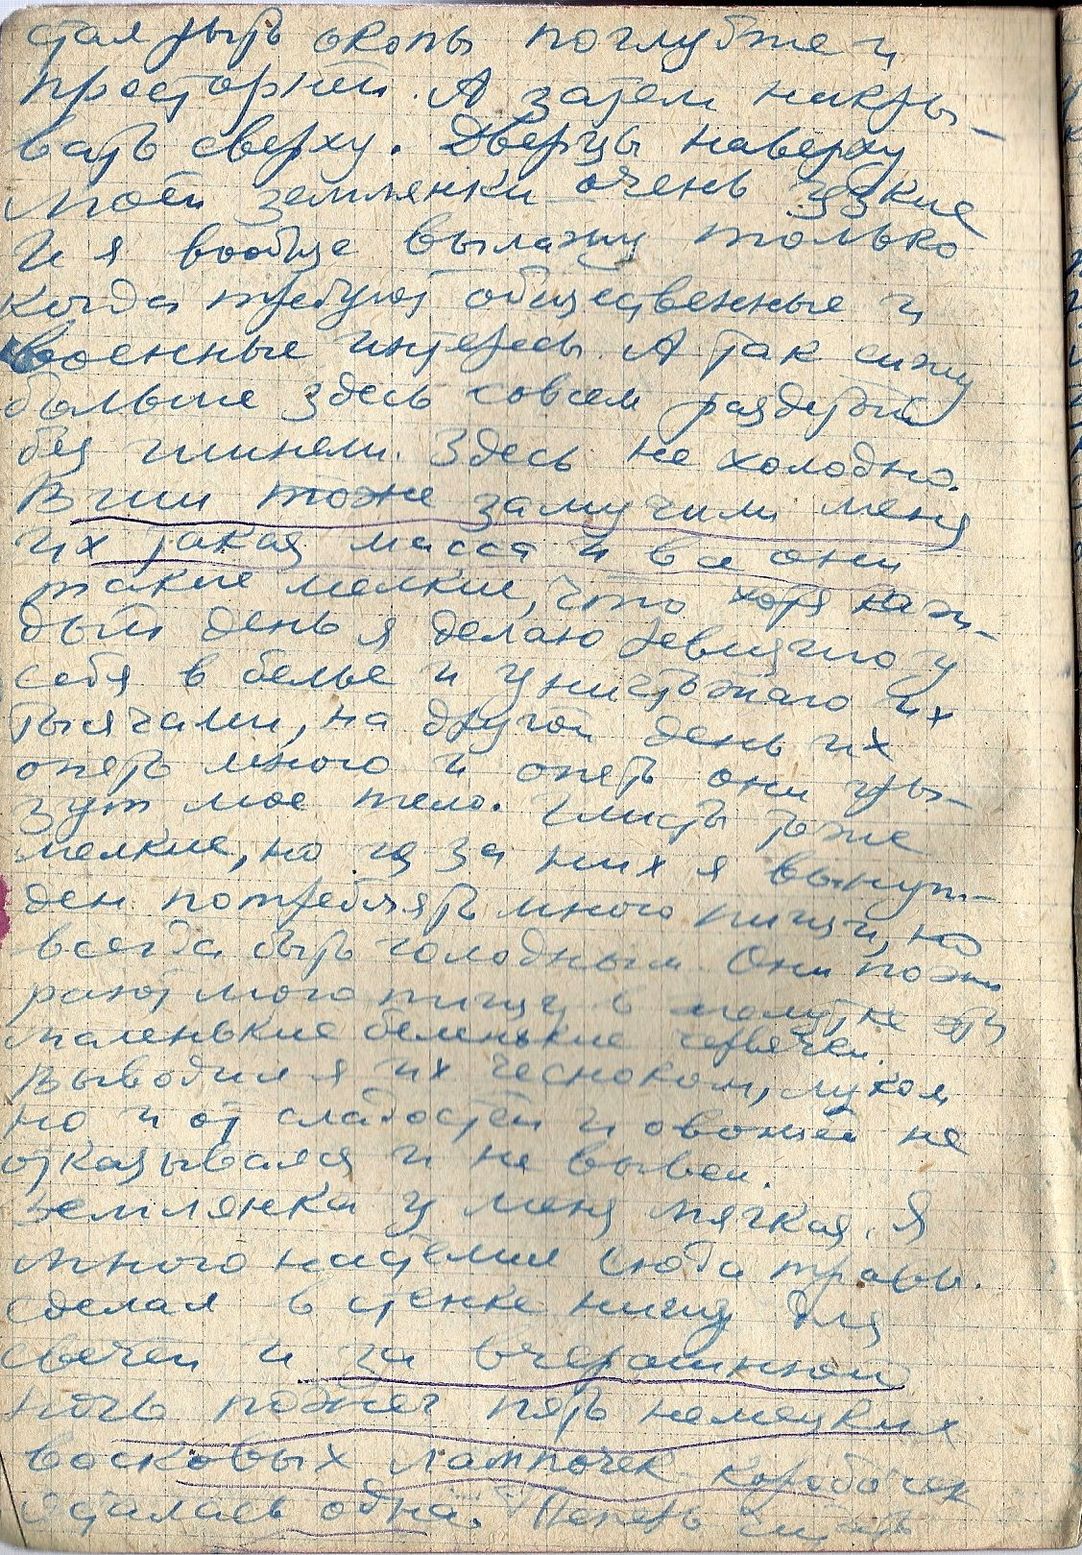 стал рыть окопы поглубже и
просторней. А затем накры-
вать сверху. Дверцы наверху
моей землянки очень узкие
И я вообще вылажу только
когда требуют общественные и
военные интересы. А так сижу
больше здесь совсем раздетый
без шинели. Здесь не холодно.
Вши тоже замучили меня
их такая масса и все они
такие мелкие, что хотя каж-
дый день я делаю ревизию у
себя в белье и уничтожаю их
тысячами, на другой день их
опять много и опять они гры-
зут мое тело. Глисты тоже
мелкие, но из за них я вынуж-
ден потреблять много пищи, но
всегда быть голодным. Они пож
рают мою пищу в желудке эти
маленькие беленькие червячки.
Выводил я их чесноком, луком
но и от сладостей и овощей не
отказывался и не вывел.
Землянка у меня мягкая. Я
много настелил сюда травы.
сделал в стенке нишу для
свечей и за вчерашнюю
ночь пожег пять немецких
восковых лампочек коробочек
Осталась одна. Теперь читать